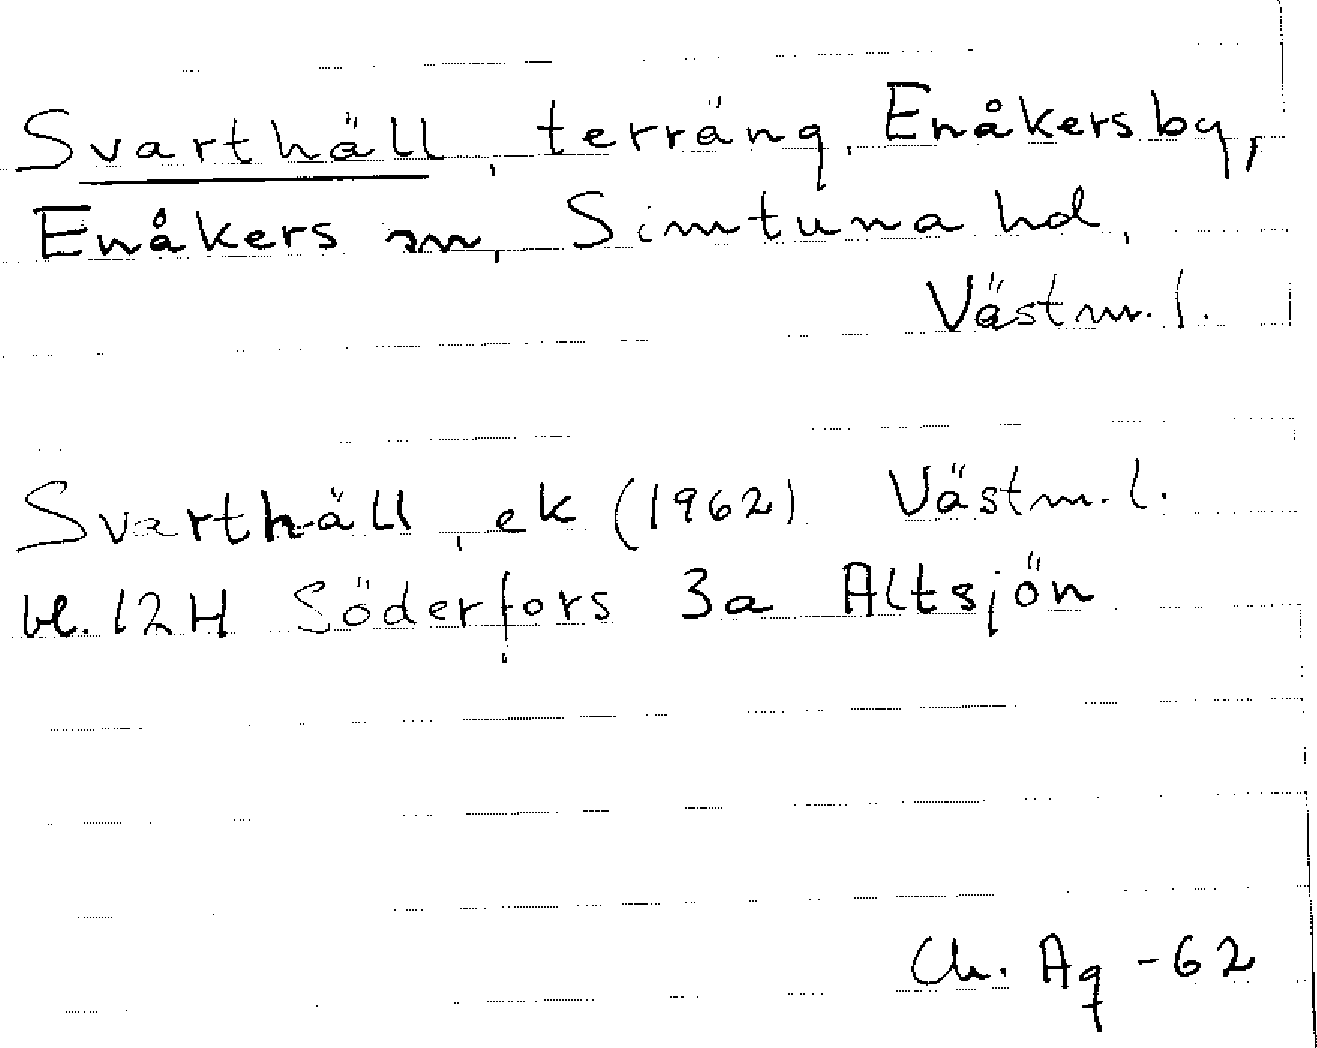 Svarthäll, terräng, Enåkersby,
Enåkers sn, Simtuna hd,
Västm. l.
Svarthäll, ek (1962) Västm. l.
bl. 12H Söderfors 3a Altsjön
Ch. Ag -62